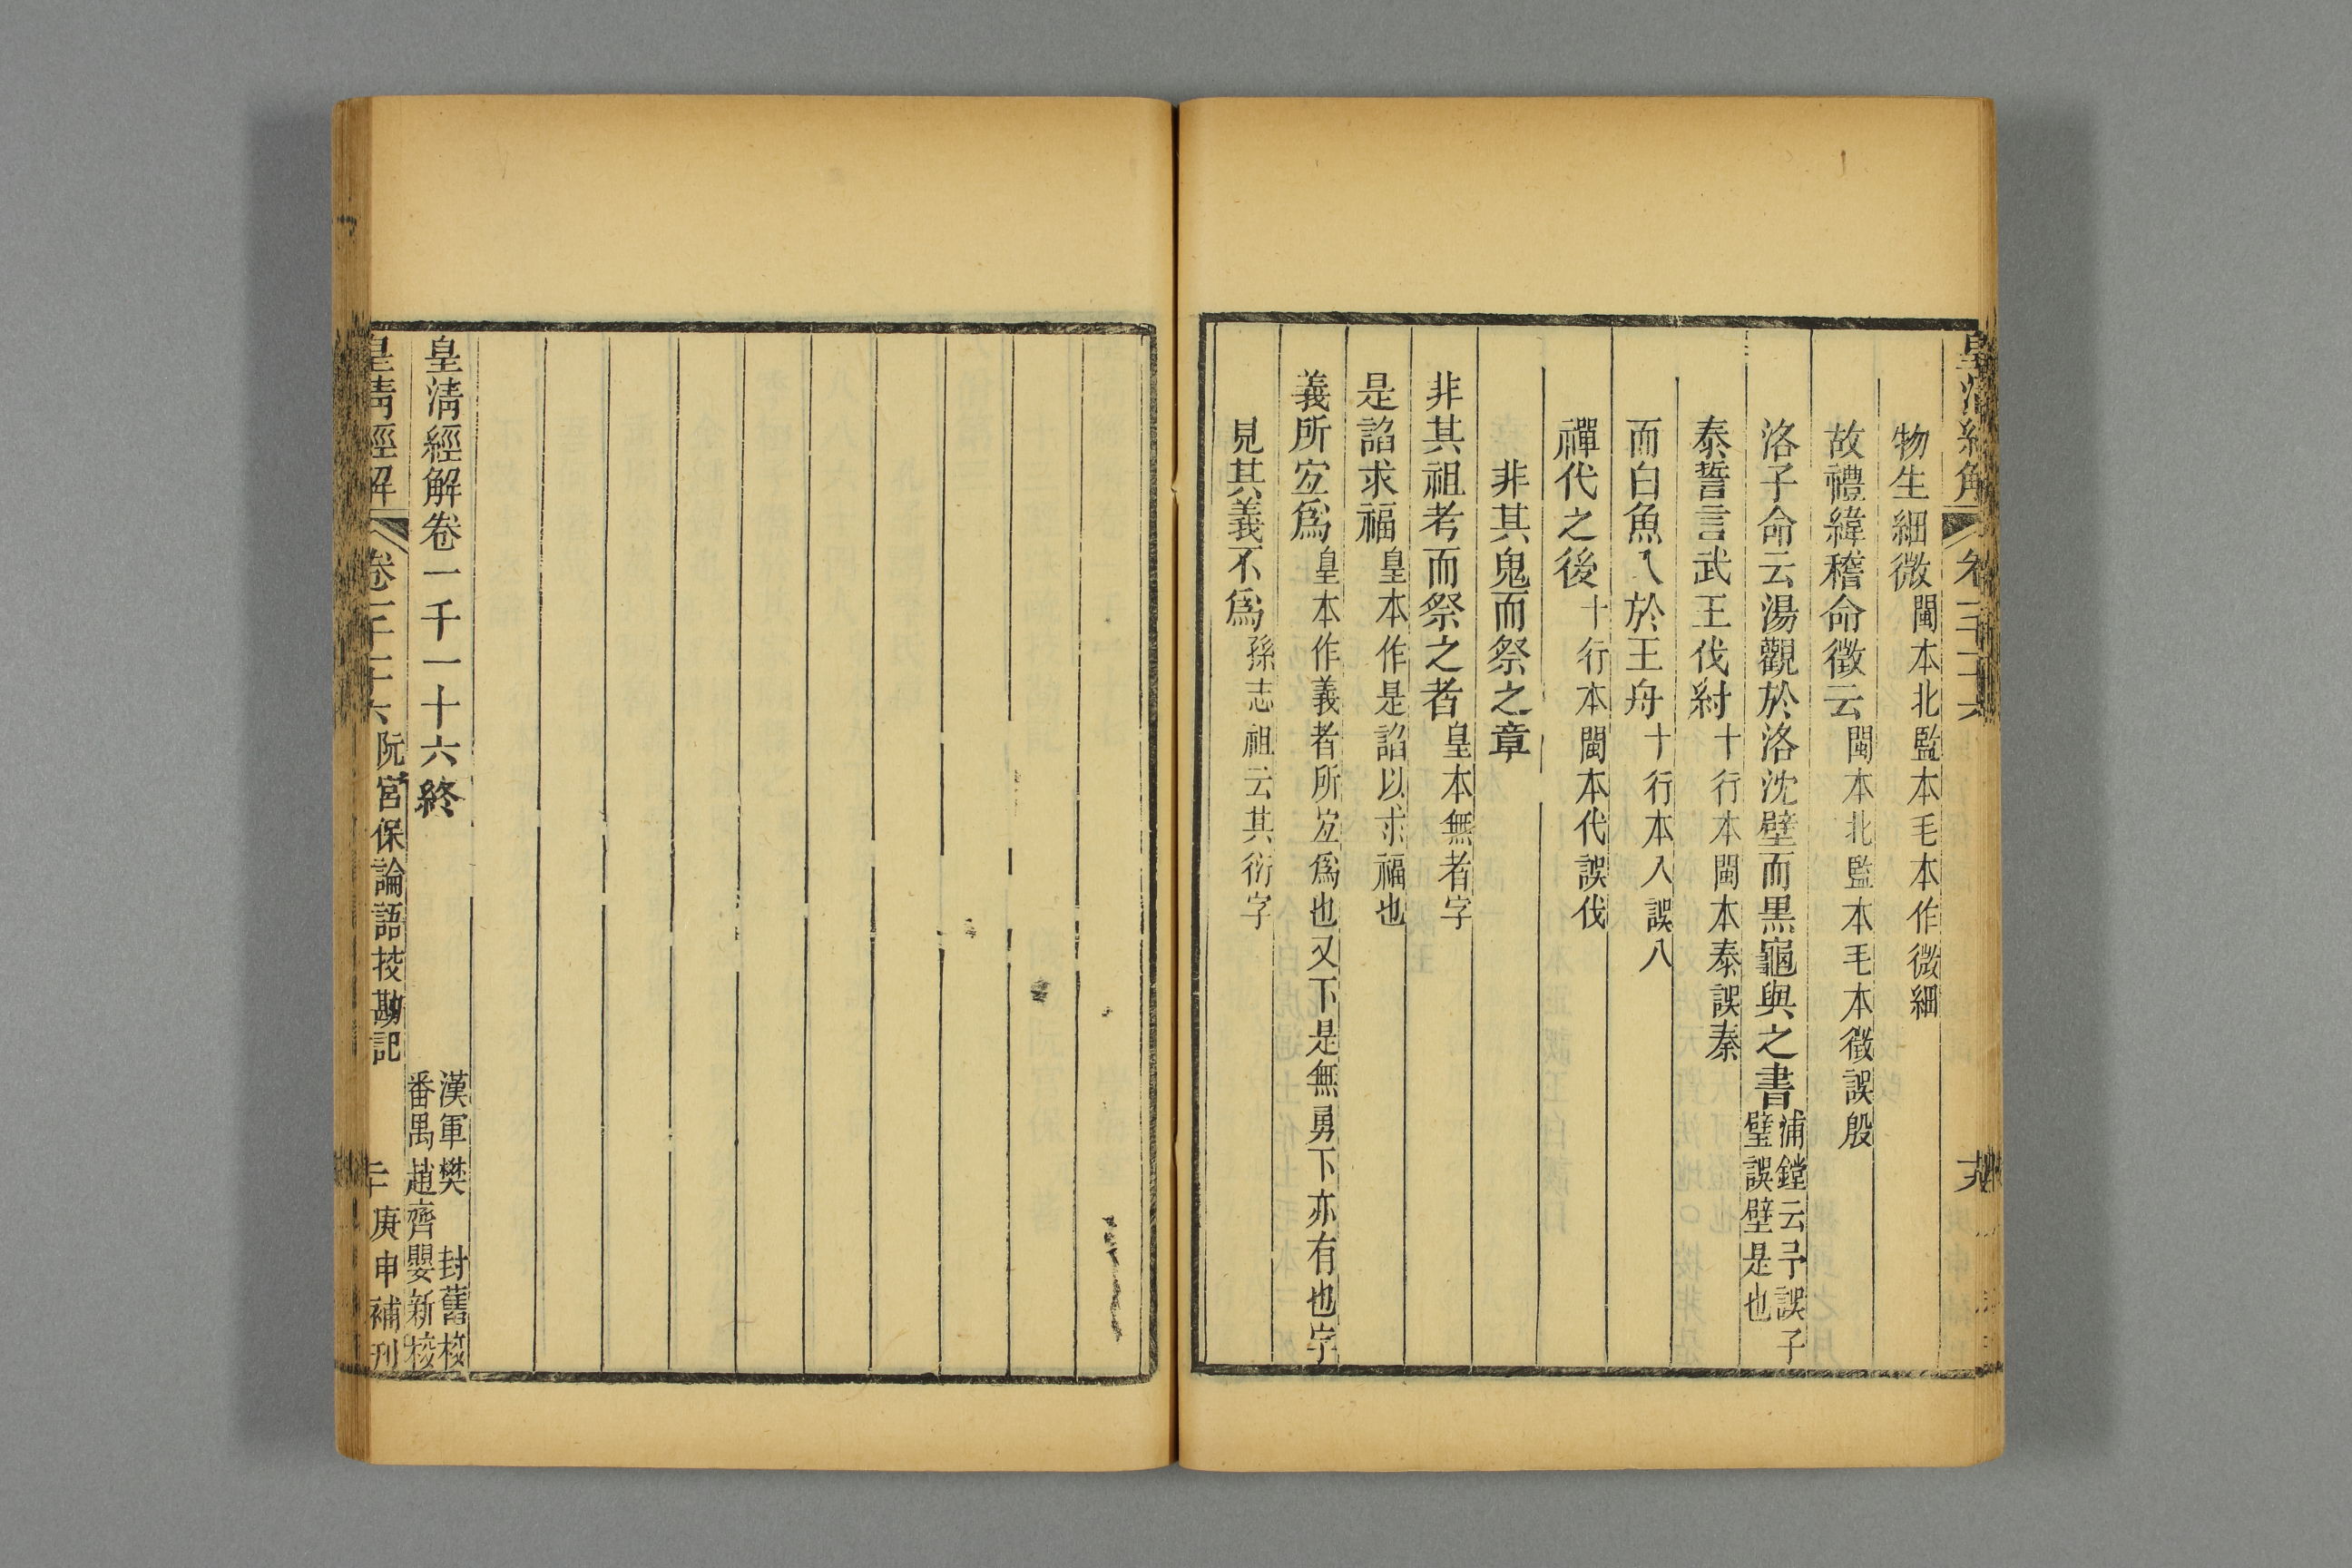 物生細微閩本北監本毛本作微細
故禮緯稽命徵云閩本北監本毛本徵誤殷
洛子命云湯觀於洛沈壁而黑龜與之書浦鏜云予誤子璧誤壁是也
泰誓言武王伐紂十行本閩本泰誤秦
而白魚入於王舟十行本入誤八
禪代之後十行本閩本代誤伐
非其鬼而祭之章
非其祖考而祭之者皇本無者字
是諂求福皇本作是諂以求福也
義所宜爲皇本作義者所宜爲也又下是無勇下亦有也字
見其義不爲孫志祖云其衍字
皇清經解卷一千一十六終
漢軍樊封舊校
番禺趙齊嬰新校
皇清經解 卷一千一十六 阮宮保論語挍勘記 二十 庚申補刊